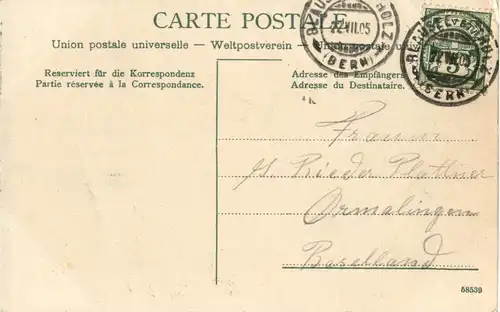 CARTE POSTALE
Union postale universelle – Weltpostverein – Union postale
Reserviert für die Korrespondenz
Partie réservée à la Correspondance.
Adresse des Empfängers
Adresse du Destinataire.
22.VII.05
(BERN)
(BERN)
5
Rieder Plattner
Ormalingen
Baselland
58539